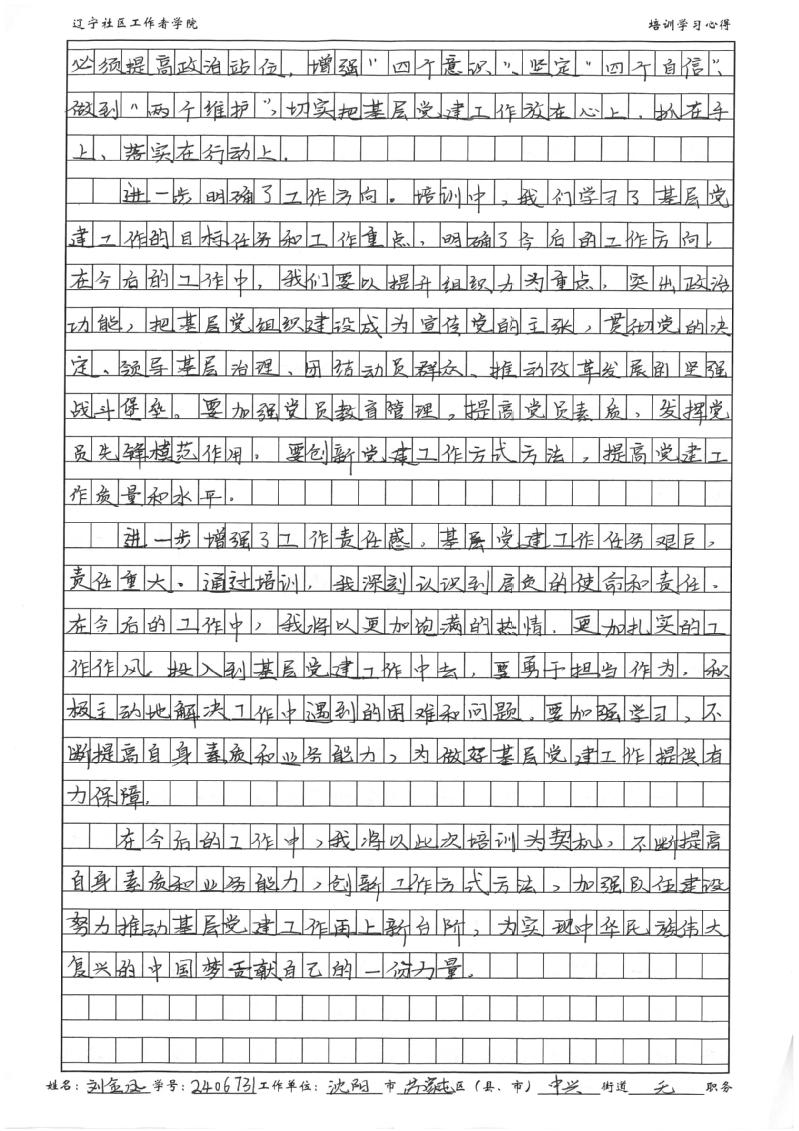 辽宁社区工作者学院 培训学习心得
必须提高政治站位，增强"四个意识"、坚定"四个自信"、
做到"两个维护"，切实把基层党建工作放在心上，抓在手
上、落实在行动上.
进一步明确了工作方向。培训中，我们学习了基层党
建工作的目标任务和工作重点，明确了今后的工作方向.
在今后的工作中，我们要以提升组织力为重点，突出政治
功能，把基层党组织建设成为宣传党的主张，贯彻党的决
定、领导基层治理、团结动员群众、推动改革发展的坚强
战斗堡垒。要加强党员教育管理，提高党员素质，发挥党
员先锋模范作用。要创新党建工作方式方法，提高党建工
作质量和水平。
进一步增强了工作责任感，基层党建工作任务艰巨，
责任重大。通过培训，我深刻认识到肩负的使命和责任。
在今后的工作中，我将以更加饱满的热情.更加扎实的工
作作风，投入到基层党建工作中去，要勇于担当作为，积
极主动地解决工作中遇到的困难和问题，要加强学习，不
断提高自身素质和业务能力，为做好基层党建工作提供有
力保障.
在今后的工作中，我将以此次培训为契机，不断提高
自身素质和业务能力，创新工作方式方法，加强队伍建设
努力推动基层党建工作再上新台阶，为实现中华民族伟大
复兴的中国梦贡献自己的一份力量。
姓名：刘金 学号：2406731 工作单位：沈阳 市 苏家屯 区（县、市） 中兴 街道 无 职务